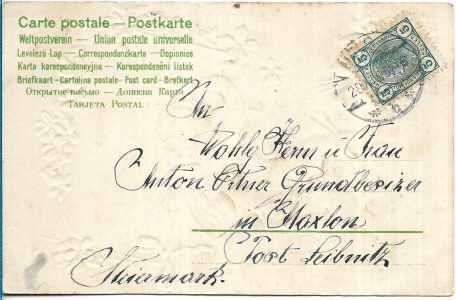 Carte postale — Postkarte
Weltpostverein — Union postale universelle
Levelező-Lap — Correspondanzkarte — Dopisnice
Karta korespondencyjna — Korespondenční lístek
Briefkaart — Cartolina postale — Post card — Brefkort
Открытое письмо — Дописна Карта
Tarjeta Postal
5 5
An
Wohlg Herrn u Frau
Anton Ortner Grundbesizer
in Maxlon
Post Leibnitz
Steiermark.